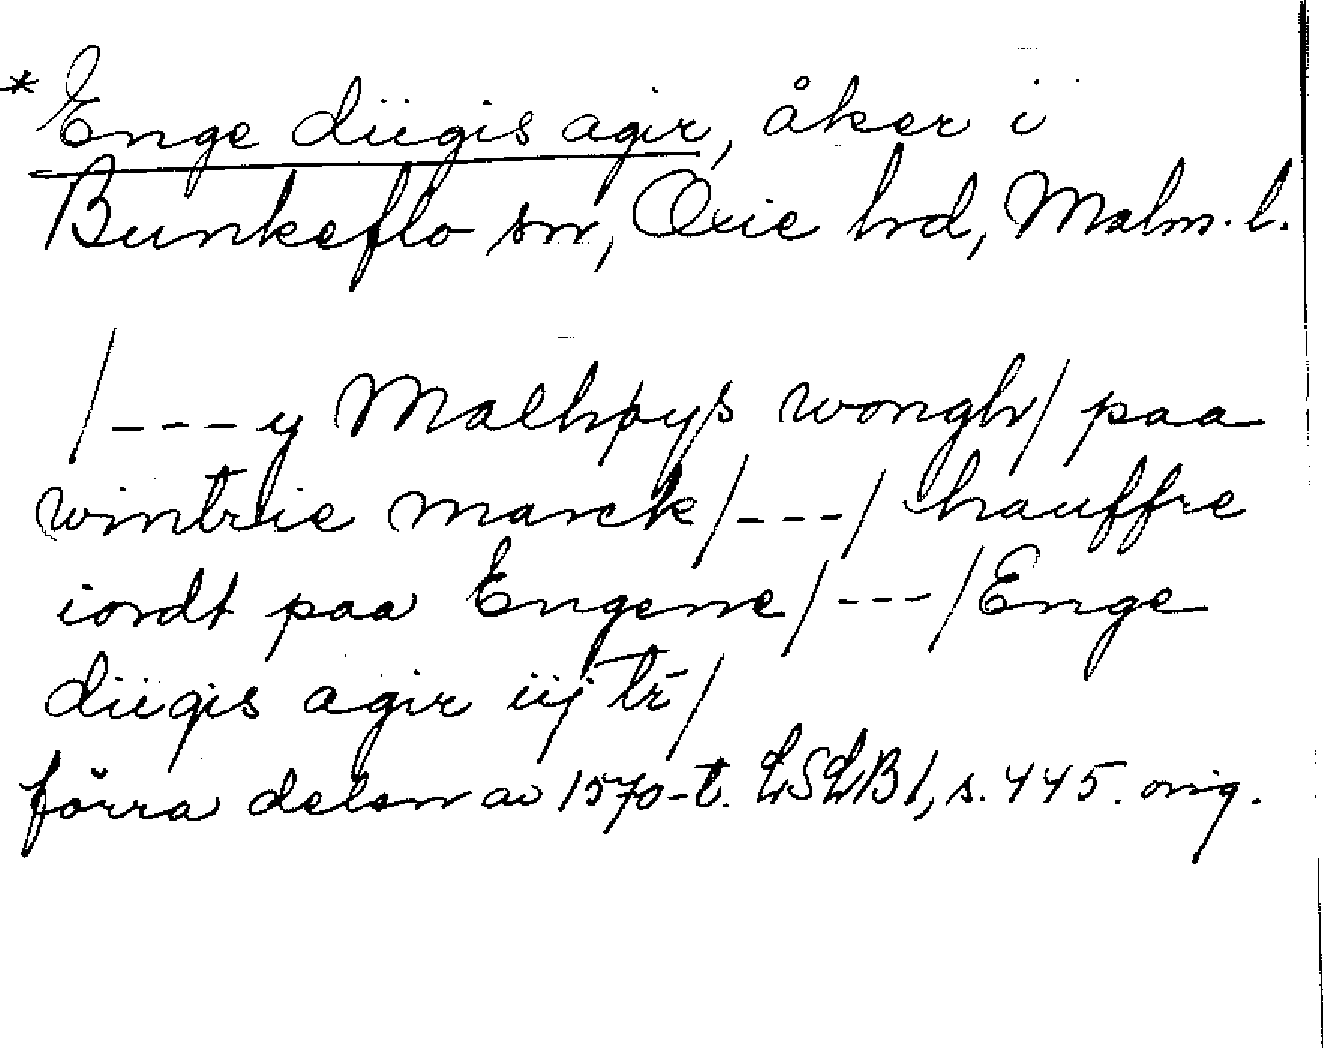 *Enge diiegis agir, åker i
Bunkeflo sn, Oxie hd, Malm. l.
/---y Malhøys wongh/ paa
wintrie marck/---/ hauffre
iordt paa Engene/---/Enge
diiegis agir iij tr/
förra delen av 1570-t. LSLB1, s. 445. orig.